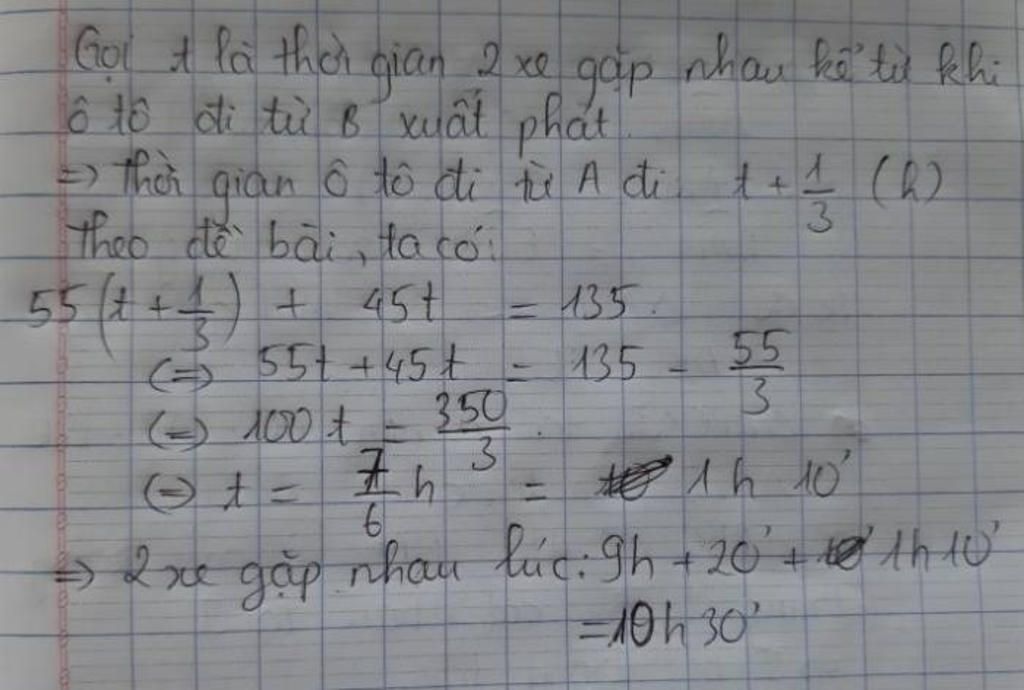 Gọi t là thời gian 2 xe gặp nhau kể từ khi
ô tô đi từ B xuất phát.
=> Thời gian ô tô đi từ A đi t + 1/3 (h)
Theo đề bài, ta có:
55(t + 1/3) + 45t = 135.
(=) 55t + 45t = 135 - 55/3
(=) 100t = 350/3.
(=) t = 7/6 h = 1h 10'
=> 2 xe gặp nhau lúc: 9h + 20' + 1h10'
= 10h30'